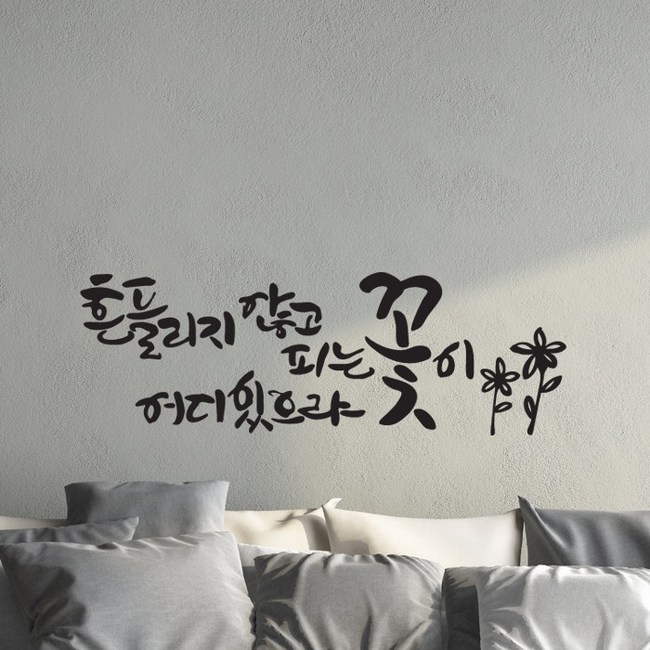 흔들리지 않고
피는 꽃이
어디 있으랴